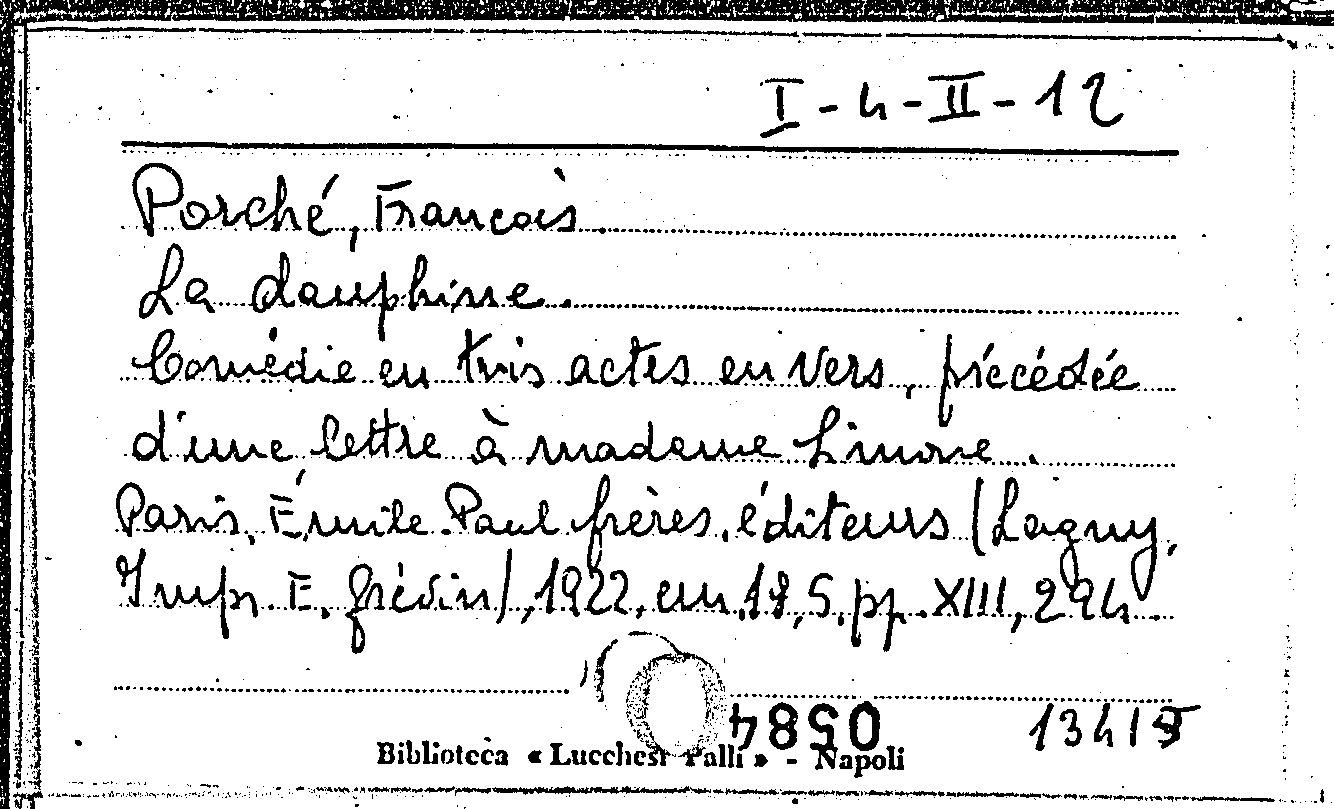 I-4-II-12
Porché, Francois.
La dauphine.
Comédie en trois actes en vers, précédée
d'une lettre à madame Simone.
Paris, Émile-Paul frères, éditeurs (Lagny,
Imp. E. Grévin), 1922, cm. 18,5, pp. XIII, 294.
0584
Biblioteca « Lucchesi Palli » - Napoli